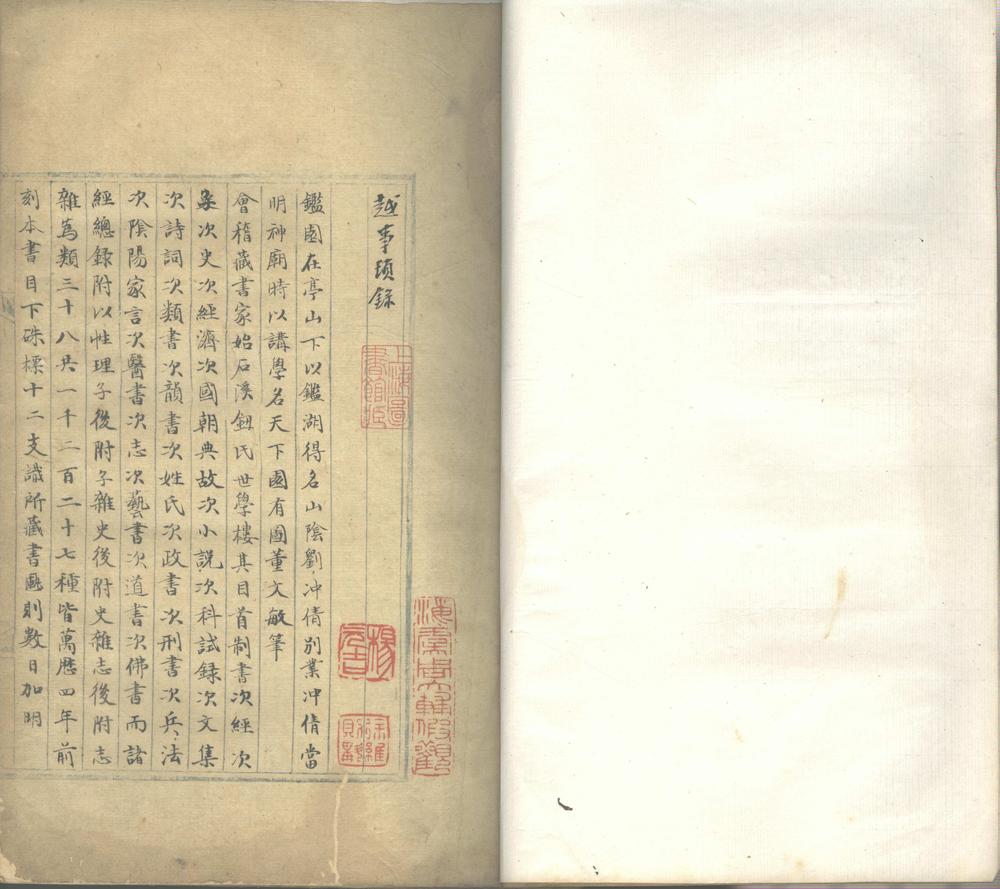 越事瑣錄
鑑園在亭山下以鑑湖得名山陰劉冲倩別業冲倩當
明神廟時以講學名天下園有圖董文敏筆
會稽藏書家始石溪鈕氏世學樓其目首制書次經次
彖次史次經濟次國朝典故次小說次科試録次文集
次詩詞次類書次韻書次姓氏次政書次刑書次兵法
次陰陽家言次醫書次志次藝書次道書次佛書而諸
經總録附以性理子後附子雜史後附史雜志後附志
雜為類三十八共一千二百二十七種皆萬歷四年前
刻本書目下硃標十二支識所藏書匭則數日加明
上海圖書館藏